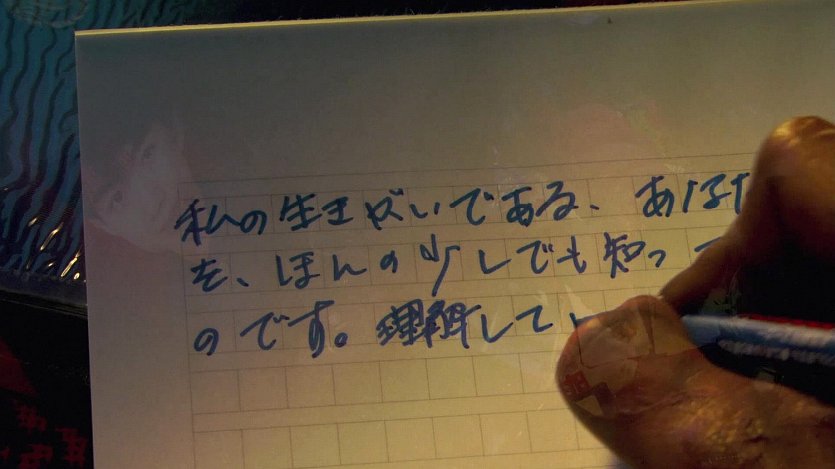 私の生きがいである、あなた
を、ほんの少しでも知って
のです。理解してい